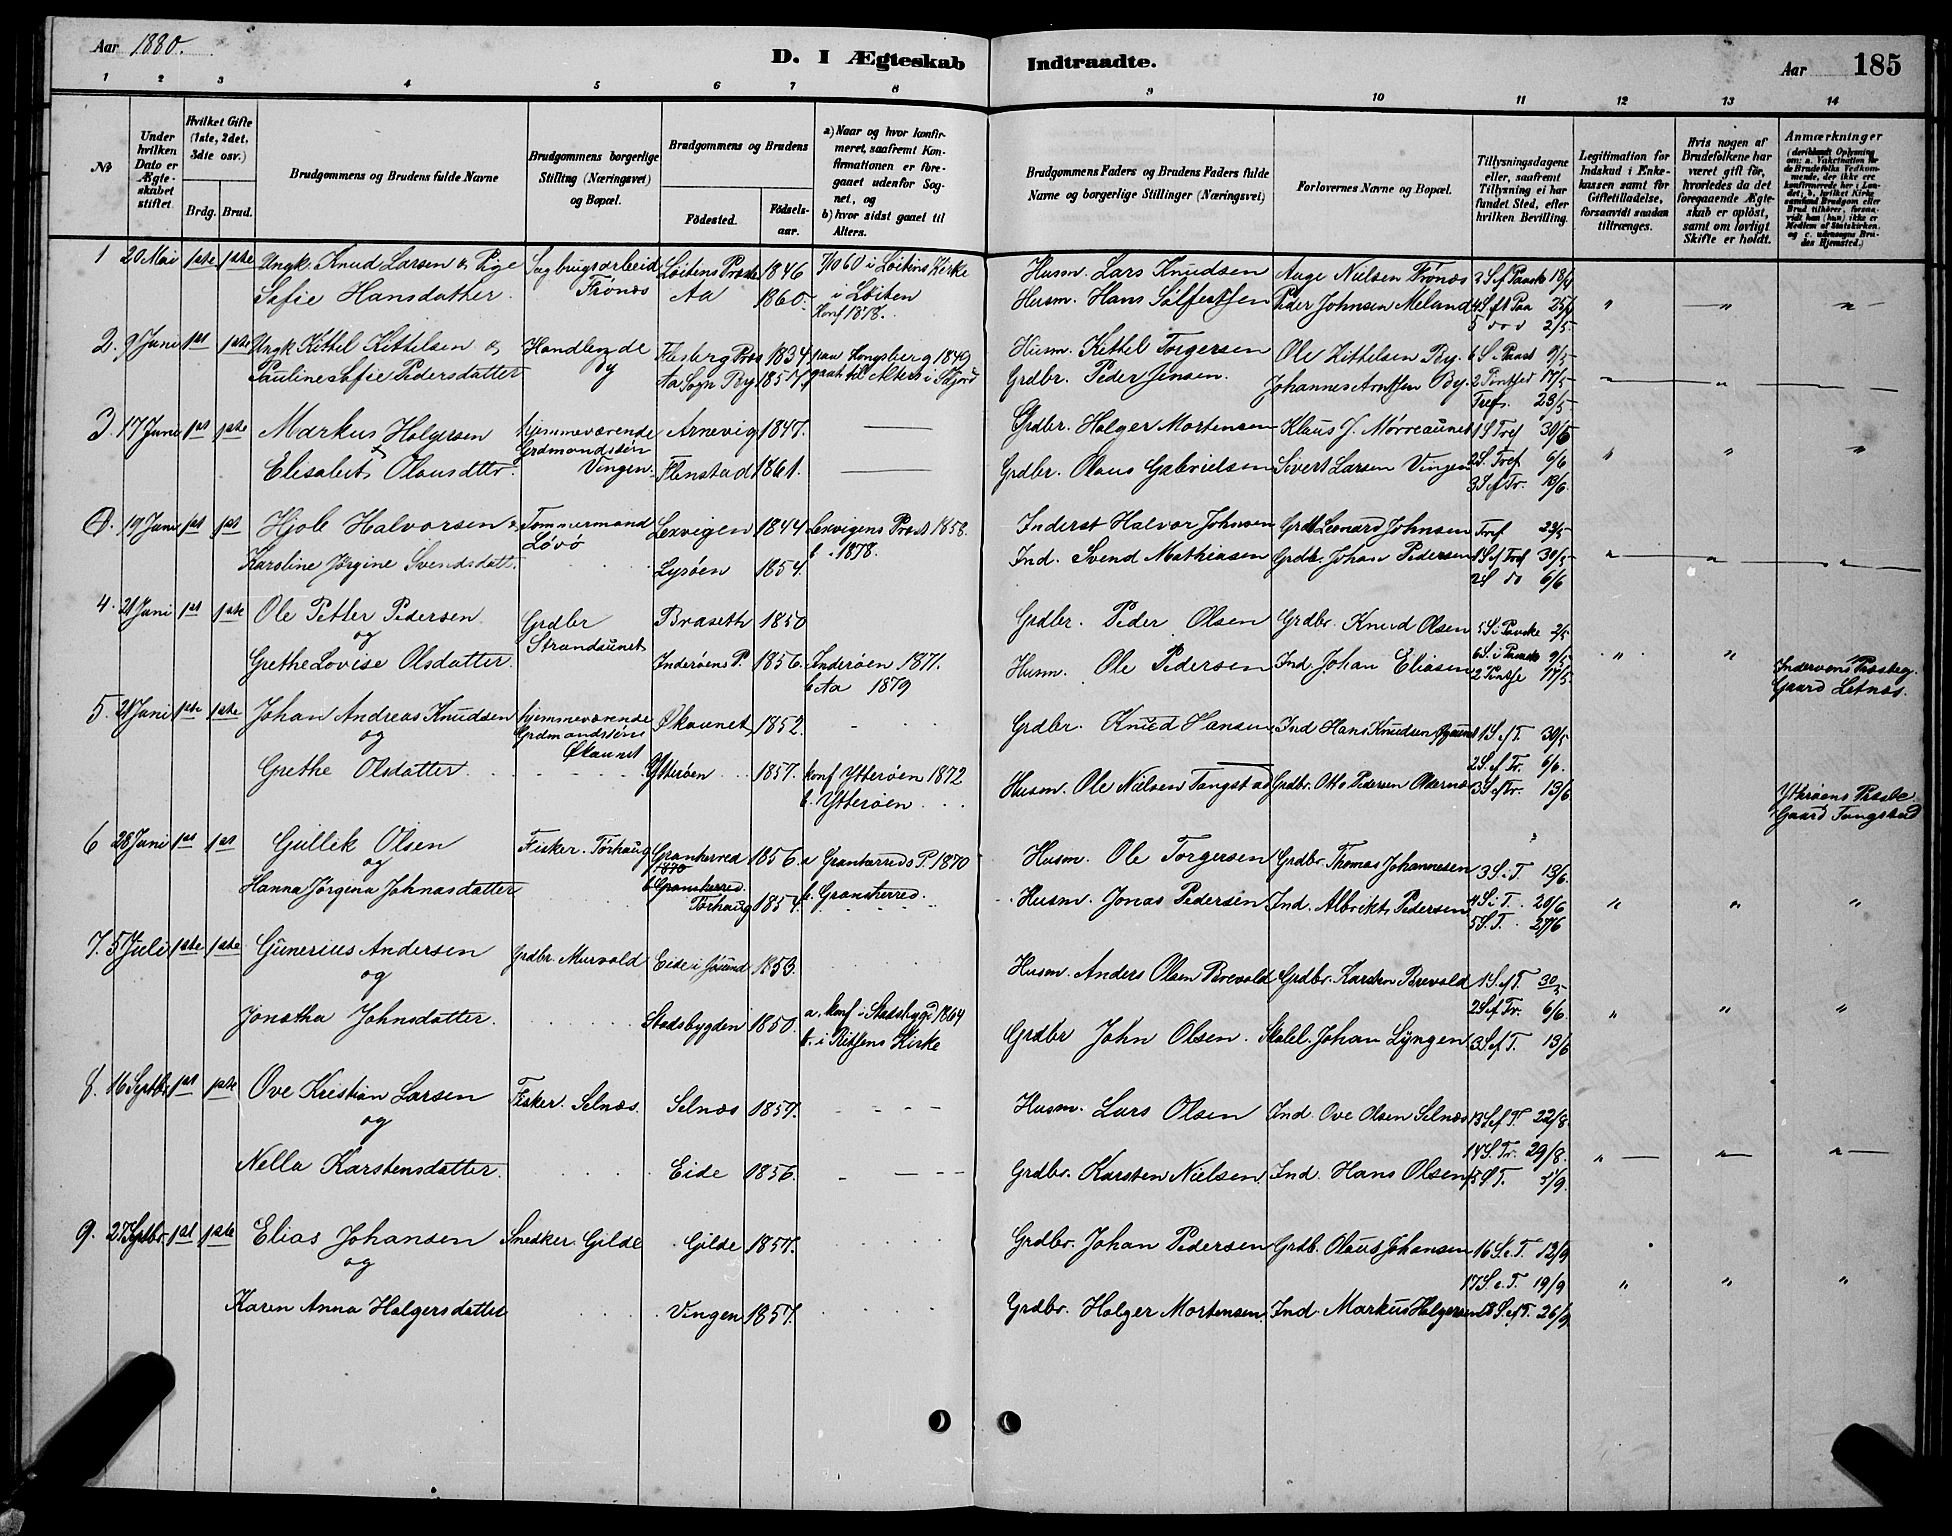 Aar 1880.
D. I Ægteskab Indtraadte.
Aar 185
1 2 3 4 5 6 7 8 9 10 11 12 13 14
No
Under hvilken Dato er Ægteskabet stiftet.
Hvilket Gifte (1ste, 2det, 3die osv.)
Brdg. Brud.
Brudgommens og Brudens fulde Navne
Brudgommens borgerlige Stilling (Næringsvei) og Bopæl.
Brudgommens og Brudens
Fødested. Fødselsaar.
a) Naar og hvor konfirmeret, saafremt Konfirmationen er foregaaet udenfor Sognet, og
b) hvor sidst gaaet til Alters.
Brudgommens Faders og Brudens Faders fulde Navne og borgerlige Stillinger (Næringsvei)
Forlovernes Navne og Bopæl.
Tillysningsdagene eller, saafremt Tillysning ei har fundet Sted, efter hvilken Bevilling.
Legitimation for Indskud i Enkekassen samt for Giftetilladelse, forsaavidt saadan tiltrænges.
Hvis nogen af Brudefolkene har været gift før, hvorledes da det foregaaende Ægteskab er opløst, samt om lovligt Skifte er holdt.
Anmærkninger
1 20 Mai 1ste 1ste Ungk. Knud Larsen & Pige Sagbrugsarbeid Løitens Præst 1846 7/10 60 i Løitens Kirke Husm. Lars Knudsen Auge Nielsen Frønæs 18/4
Sofie Hansdatter. Frønæs Aa 1860. i Løiten Husm. Hans Peder Johnsen Meland 25/4
Konf 1878. 2/5
2. 9 Juni 1st 1ste Ungk Kittel Kittelsen & Handlende Flesberg Præst 1834 paa Kongsberg 1849 Husm. Kittel Torgersen Ole Kittelsen By. 9/5
Pauline Sofie Pedersdatter By Aa Sogn By 1857. gaat til Alters i Grdbr. Peder Jensen. Johannes Arntsen By. 2 Pintsed 17/5
Tref. 23/5
3. 17 Juni 1st 1ste Markus Holgersen hjemmeværende Arnevig 1847. Grdbr. Holger Mortensen Klaus J. Mørreaunet 1 S Tref 30/5
Elisabet Olausdttr. Grdmandssøn Vingen. Flenstad 1861. Grdbr. Olaus Gabrielsen Sivert Larsen Vingen 2 S. Tref 6/6
3 S ef Tr. 13/6
19 Juni 1st 1st Hjole Halvorsen & Tømmermand Lexvigen 1844 Lexvigens Præst 1858. Inderst Halvor Johnsen Grdb Leonard Johnsen Tref 23/5
Karoline Jørgine Svendsdatt. Løvø Lysøen 1854. b. 1878. Ind. Svend Mathiasen Grdbr. Johan Pedersen 1 S ef Tref 30/5
2 S do 6/6
4. 21 Juni 1st 1ste Ole Petter Pedersen Grdbr Braseth 1850 Grdbr. Peder Olsen Grdbr. Knud Olsen 5 S. i Paaske 2/5
og Strandaunet
Grethe Lovise Olsdatter. Inderøens P. 1856. Inderøen 1871. Husm. Ole Pedersen Ind. Johan Eliasen 6 S. i Paaske 9/5 Inderøens Præsteg.
b. Aa 1879 2 Pintse 17/5 Gaard Letnæs.
5. 21 Juni 1ste 1ste Johan Andreas Knudsen hjemmeværende Økaunet 1852. Grdbr. Knud Hansen Ind Hans Knudsen 1 S. ef T. 30/5
og Grdmandssøn Økaunet 2 S. ef Tr. 6/6.
Grethe Olsdatter. Ytterøen 1857. konf Ytterøen 1872 Husm. Ole Nielsen Tangstad Grdbr. Otto Pedersen Oldernæs 3 S ef Tr. 13/6 Ytterøens Præste
b. Ytterøen Gaard Tangstad
6 28 Juni 1st 1st Gullek Olsen Fisker. Tørhaug Gransherred 1856. a Gransherreds P. 1870 Husm. Ole Torgersen Grdbr. Thomas Johannesen 3 S. T. 13/6.
og
Hanna Jørgina Johnasdatter Tørhaug 1854. b. Gransherred. Husm. Jonas Pedersen Ind. Albrikt Pedersen 4 S. T. 20/6
5 S. T. 27/6
7. 5 Juli 1ste 1ste Gunerius Andersen Grdbr. Murvold Eide i Jøssund 1853. Husm. Anders Olsen Brevold Grdbr. Karsten Brevold 1 S. ef T. 30/5
og 2 S ef Tr. 6/6.
Jonetha Johnsdatter. Stadsbygden 1850. a. konf i Stadsbygd 1864 Grdbr John Olsen. Johan Lyngen 3 S ef T. 13/6
b. i Rissens Kirke
8. 16 Septbr 1st 1ste Ove Kristian Larsen Fisker. Selnæs. Selnæs 1857. Husm. Lars Olsen Ind. Ove Olsen Selnæs 13 S ef T. 22/8.
og 14 S. Tr. 29/8.
Nella Karstensdatter. Eide 1856. Grdbr. Karsten Nielsen Ind. Hans Olsen 15 S T. 5/9.
9. 27 Septbr. 1st 1ste Elias Johansen Snedker. Gilde Gilde 1857. Grdbr. Johan Pedersen Grdb. Olaus Johansen 16 S. e. T. 12/9
og 17 S. e. T. 19/9
Karen Anna Holgersdatter Vingen 1857. Grdbr. Holger Mortensen. Ind. Markus Holgersen 18 S. ef T. 26/9